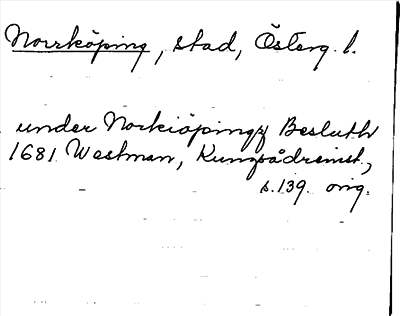 Norrköping, stad, Österg. l.
under Norkiöpingz Besluth
1681 Westman, Kungsådreinst.,
s.139. orig.